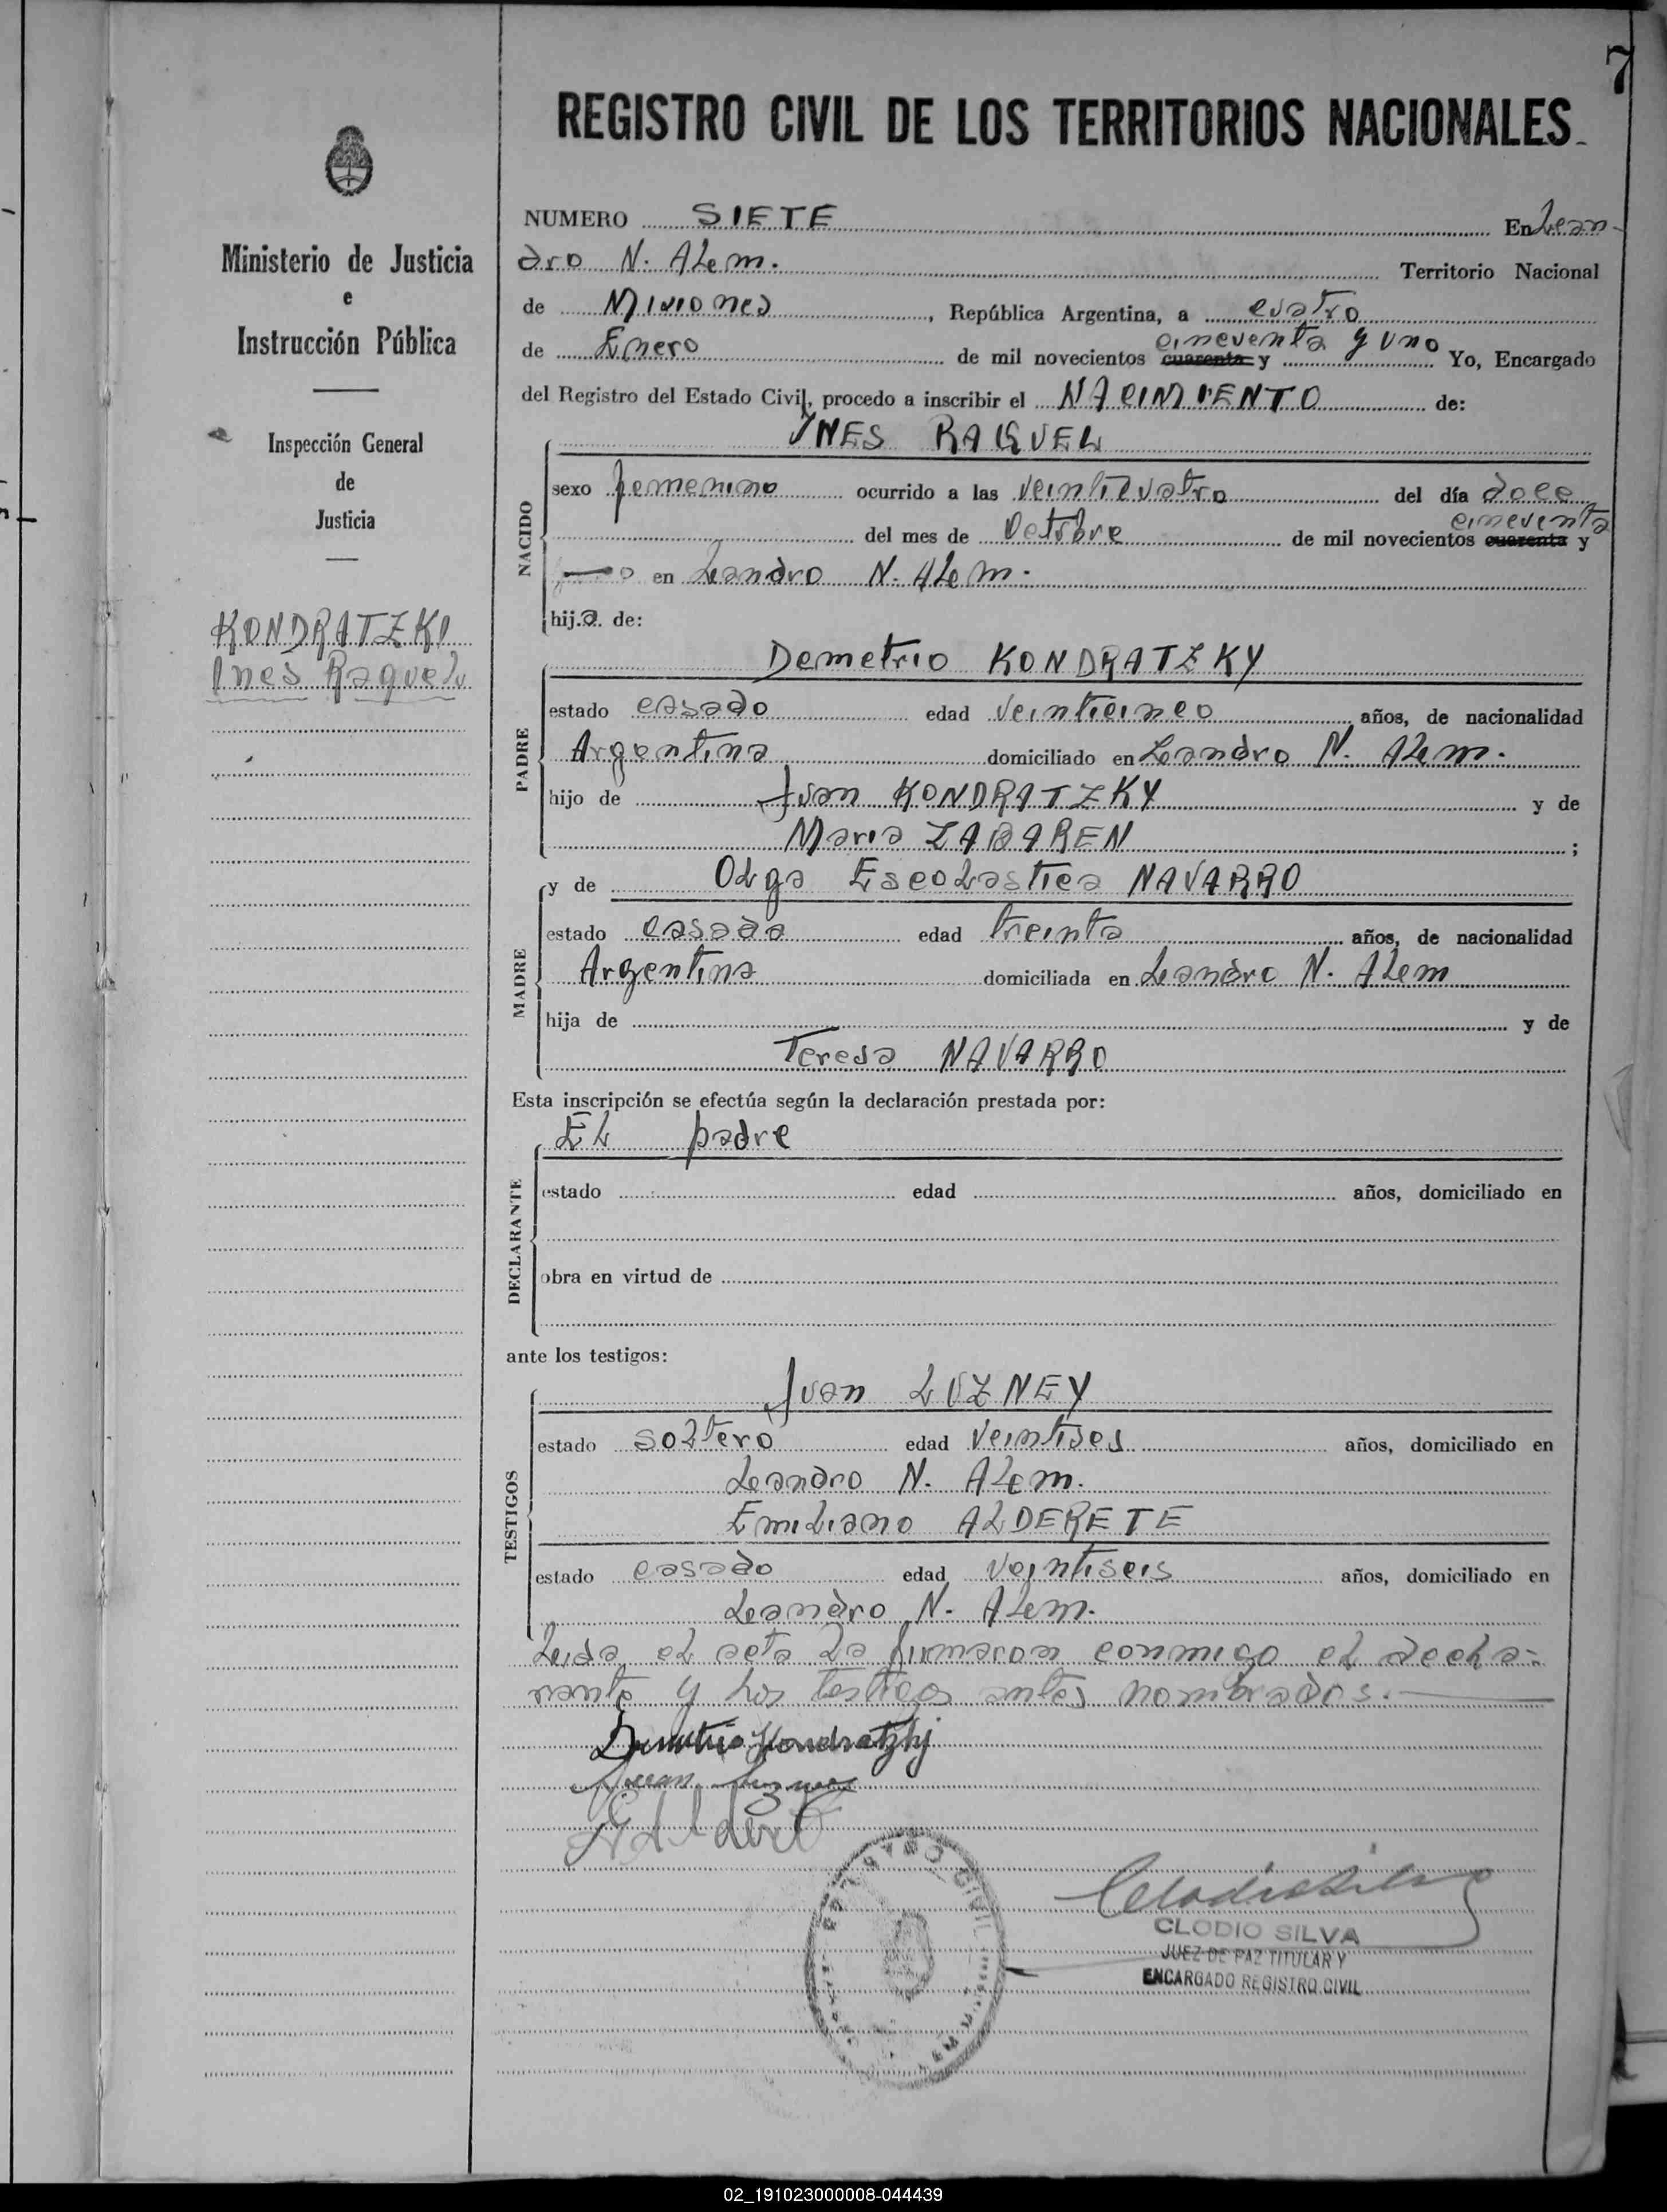 7
REGISTRO CIVIL DE LOS TERRITORIOS NACIONALES
Ministerio de Justicia
e
Instrucción Pública
Inspección General
de
Justicia
KONDRATZKI
Ines Raquel
NUMERO SIETE En Lean-
dro N. ALem. Territorio Nacional
de Misiones, República Argentina, a cuatro
de Enero de mil novecientos cuarenta y cincuenta y uno Yo, Encargado
del Registro del Estado Civil, procedo a inscribir el NACIMIENTO de:
YNES RAQUEL
NACIDO
sexo femenino ocurrido a las veinticuatro del día doce
del mes de Octubre de mil novecientos cuarenta y cincuenta
en Leandro N. ALem.
hij.a. de:
PADRE
Demetrio KONDRATZKY
estado casado edad veinticinco años, de nacionalidad
Argentina domiciliado en Leandro N. ALem.
hijo de Juan KONDRATZKY y de
Maria ZABAREN;
MADRE
y de OLga EscoLastica NAVARRO
estado casada edad treinta años, de nacionalidad
Argentina domiciliada en Leandro N. ALem
hija de y de
Teresa NAVARRO
Esta inscripción se efectúa según la declaración prestada por:
DECLARANTE
EL padre
estado edad años, domiciliado en
obra en virtud de
ante los testigos:
TESTIGOS
Juan LUZNEY
estado soLtero edad veintises años, domiciliado en
Leandro N. ALem.
EmiLiano ALDERETE
estado casado edad veintiseis años, domiciliado en
Leandro N. ALem.
Leida eL acta La firmaron conmigo eL decLa=
rante y Los testigos antes nombrados.
Demetrio Kondratzkj
CLODIO SILVA
JUEZ DE PAZ TITULAR Y
ENCARGADO REGISTRO CIVIL
02_191023000008-044439